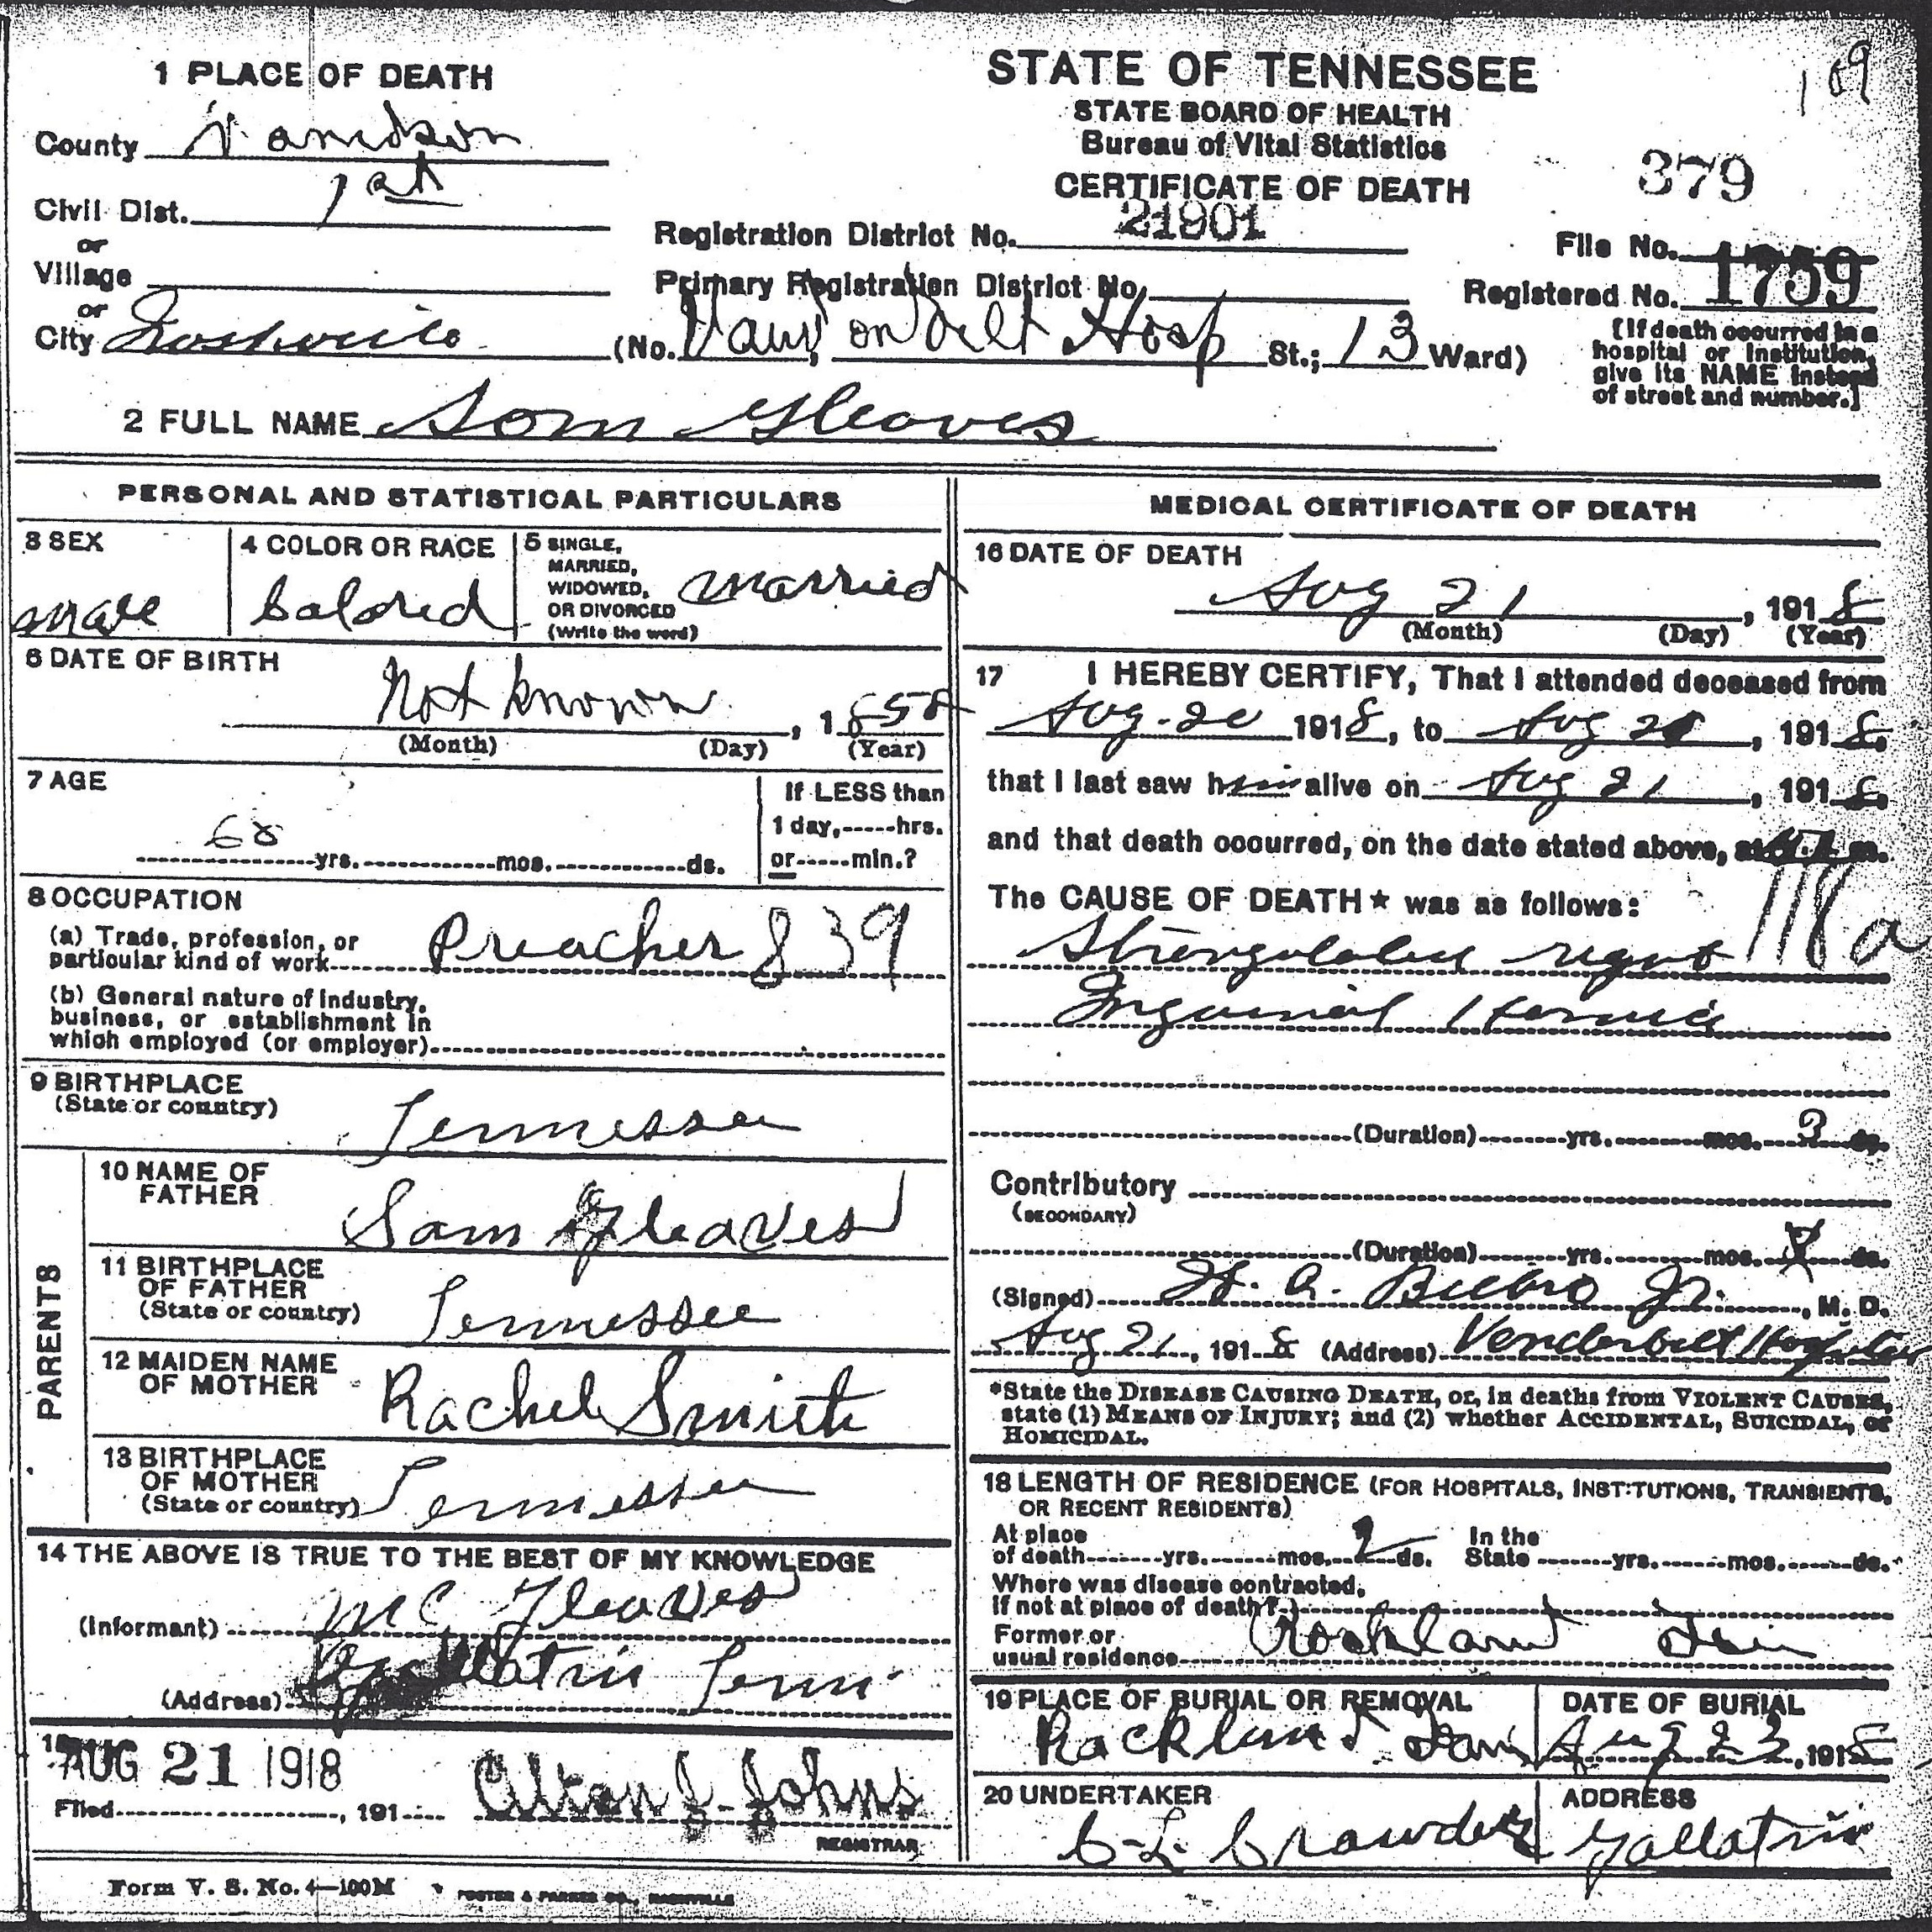 109
1 PLACE OF DEATH
STATE OF TENNESSEE
STATE BOARD OF HEALTH
Bureau of Vital Statistics
CERTIFICATE OF DEATH
379
County Davidson
Civil Dist. 1st
or
Village
or
City Nashville
Registration District No. 21901
File No.
Primary Registration District No.
Registered No. 1759
(No. Vanderbilt Hosp St.; 13 Ward)
[If death occurred in a
hospital or institution,
give its NAME instead
of street and number.]
2 FULL NAME Sam Gleaves
PERSONAL AND STATISTICAL PARTICULARS
3 SEX
male
4 COLOR OR RACE
Colored
5 SINGLE,
MARRIED,
WIDOWED,
OR DIVORCED
(Write the word)
married
6 DATE OF BIRTH
Not known, 1858
(Month) (Day) (Year)
7 AGE
60 yrs. mos. ds.
If LESS than
1 day, hrs.
or min.?
8 OCCUPATION
(a) Trade, profession, or
particular kind of work Preacher 839
(b) General nature of industry,
business, or establishment in
which employed (or employer)
9 BIRTHPLACE
(State or country) Tennessee
PARENTS
10 NAME OF
FATHER Sam Gleaves
11 BIRTHPLACE
OF FATHER
(State or country) Tennessee
12 MAIDEN NAME
OF MOTHER Rachel Smith
13 BIRTHPLACE
OF MOTHER
(State or country) Tennessee
14 THE ABOVE IS TRUE TO THE BEST OF MY KNOWLEDGE
(Informant) Mc Gleaves
(Address) Gallatin Tenn
15
AUG 21 1918
Filed , 191 Alton S. Johns
REGISTRAR
Form V. S. No. 4—100M
FOSTER & PARKES CO., NASHVILLE
MEDICAL CERTIFICATE OF DEATH
16 DATE OF DEATH
Aug 21, 1918
(Month) (Day) (Year)
17 I HEREBY CERTIFY, That I attended deceased from
Aug. 20 1918, to Aug 21, 1918,
that I last saw him alive on Aug 21, 1918,
and that death occurred, on the date stated above, at m.
The CAUSE OF DEATH* was as follows:
118a
Strangulated right
Inguinal Hernia
(Duration) yrs. mos. ds.
Contributory
(SECONDARY)
(Duration) yrs. mos. ds.
(Signed) Bilbro Jr., M. D.
Aug 21, 1918 (Address) Vanderbilt Hospital
*State the DISEASE CAUSING DEATH, or, in deaths from VIOLENT CAUSES,
state (1) MEANS OF INJURY; and (2) whether ACCIDENTAL, SUICIDAL, or
HOMICIDAL.
18 LENGTH OF RESIDENCE (FOR HOSPITALS, INSTITUTIONS, TRANSIENTS,
OR RECENT RESIDENTS)
At place
of death yrs. mos. 2 ds.
In the
State yrs. mos. ds.
Where was disease contracted,
if not at place of death?
Former or
usual residence Rockland
19 PLACE OF BURIAL OR REMOVAL
Rockland
DATE OF BURIAL
Aug 23, 1918
20 UNDERTAKER
C. L. Crowder
ADDRESS
Gallatin